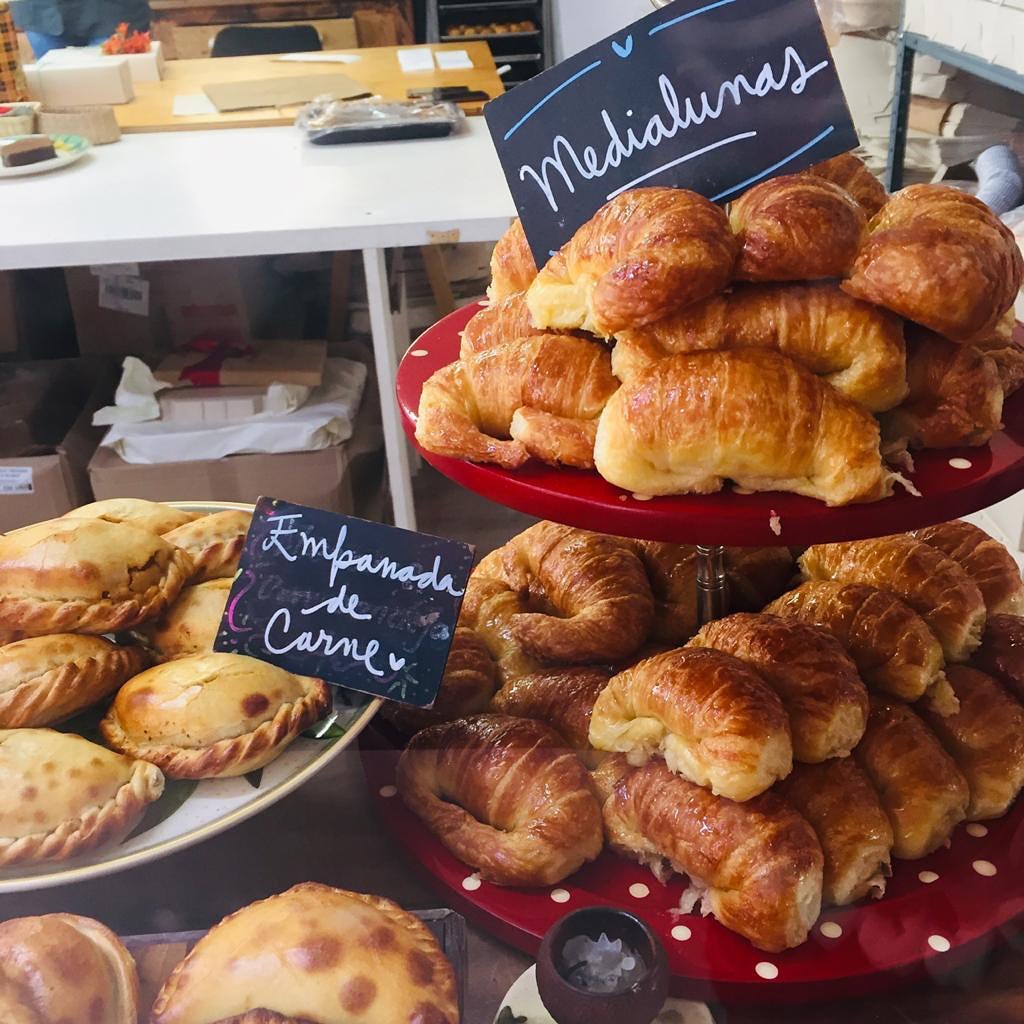 Medialunas
Empanada
de
Carne